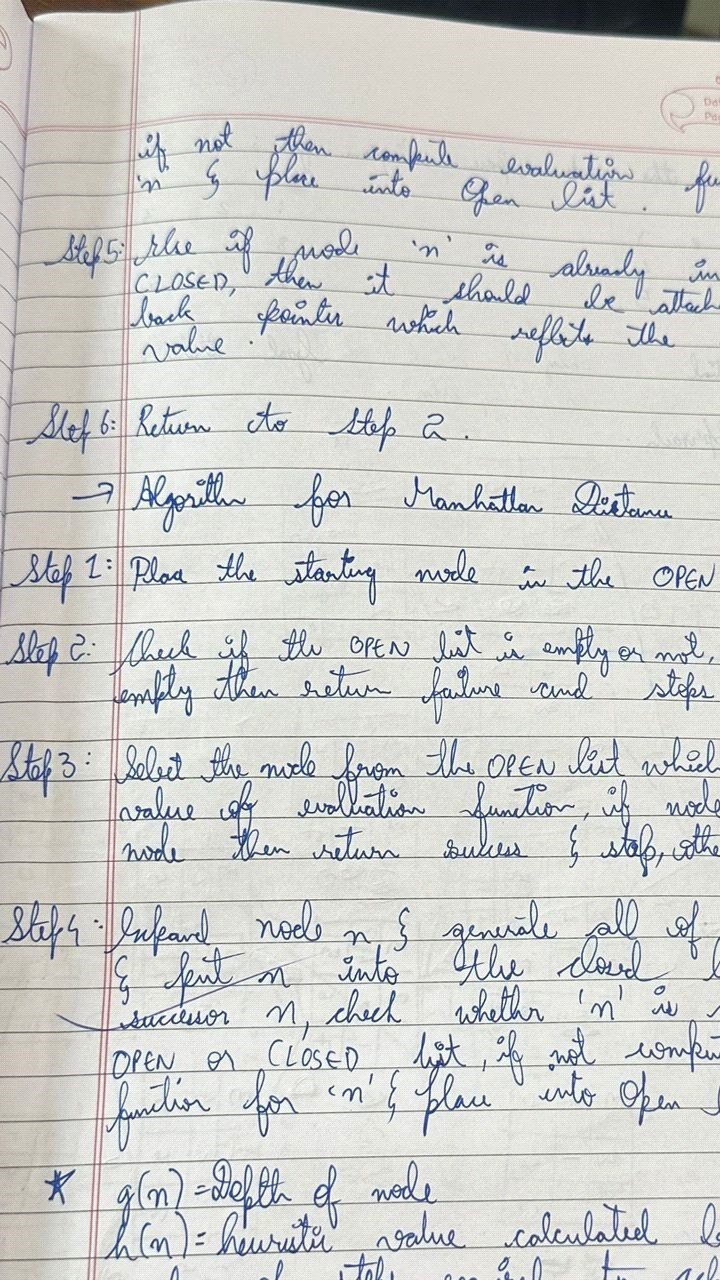 Da
Pa
if not then compute evaluation fu
'n' & place into Open list.
Step 5: else if node 'n' is already in
CLOSED, then it should be attach
back pointer which reflits the
value.
Step 6: Return to Step 2.
→ Algorith for Manhattan Distance
Step 1: Place the starting node in the OPEN
Step 2: Check if the OPEN list is empty or not,
empty then return failure and stops
Step 3: Select the node from the OPEN list which
value of evalution function, if node
node then return success & stop, othe
Step 4: node n & generate all of
& put n into the closed l
successor n, check whethr 'n' is
OPEN or CLOSED list, if not compu
function for 'n' & place into Open
* g(n) = Depth of node
h(n) = heuristic value calculated b